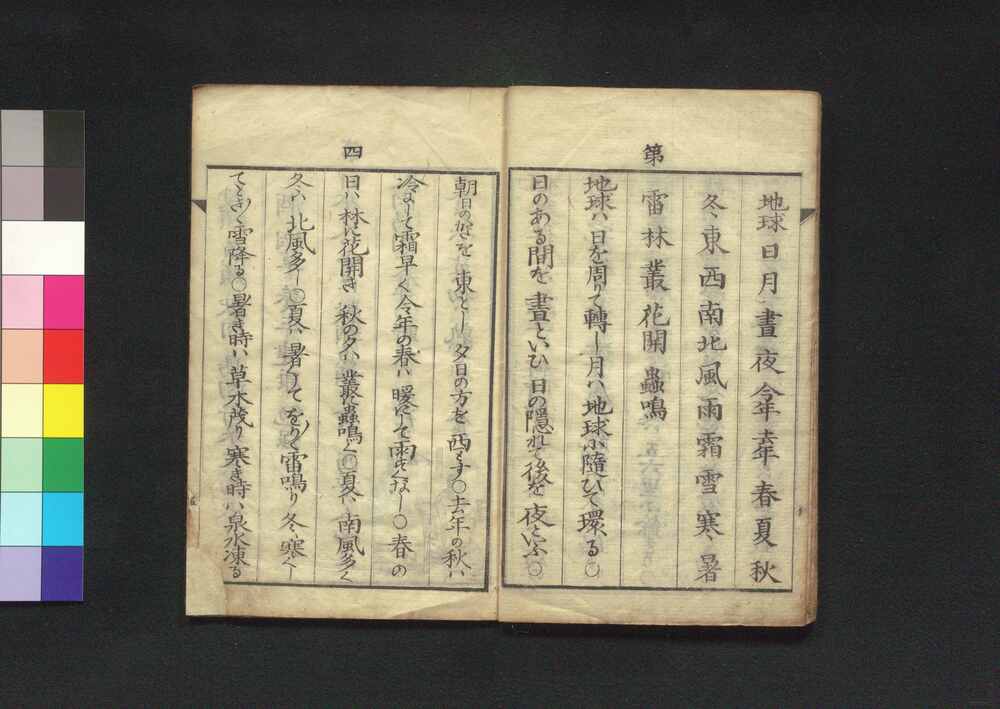 第
地球 日 月 晝 夜 今年 去年 春 夏 秋
冬 東 西 南 北 風 雨 霜 雪 寒 暑
雷 林 叢 花開 蟲鳴
地球ハ日を周りて轉し月ハ地球に隨ひて環る〇
日のある間を晝といひ日の隠れて後を夜といふ〇
四
朝日の方を東とし夕日の方を西とす〇去年の秋ハ
冷にして霜早く今年の春ハ暖にして雨なし〇春の
日ハ林に花開き秋の夕ハ叢に蟲鳴く〇夏ハ南風多く
冬ハ北風多し〇夏ハ暑くしてをり〳〵雷鳴り冬ハ寒くし
てとき〴〵雪降る〇暑き時ハ草木茂り寒き時ハ泉水凍る